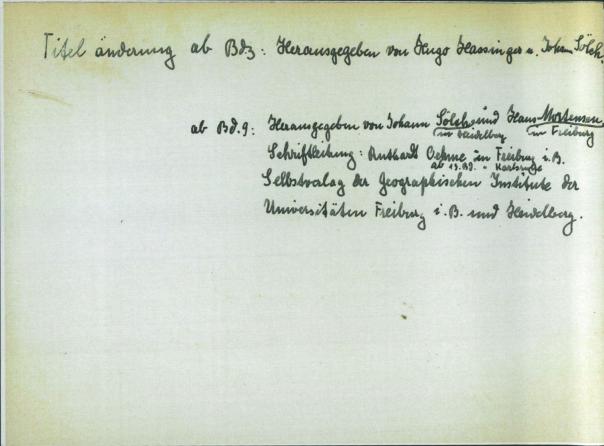 Titel änderung ab Bd.3: Herausgegeben von Hugo Hassinger u. Johann Sölch.
ab Bd.9: Herausgegeben von Johann Sölch und Hans Mortensen
in Heidelberg in Freiburg
Schriftleitung: Ruthardt Oehme in Freiburg i.B.
ab 13.Bd. " Karlsruhe
Selbstverlag der Geographischen Institute der
Universitäten Freiburg i.B. und Heidelberg.